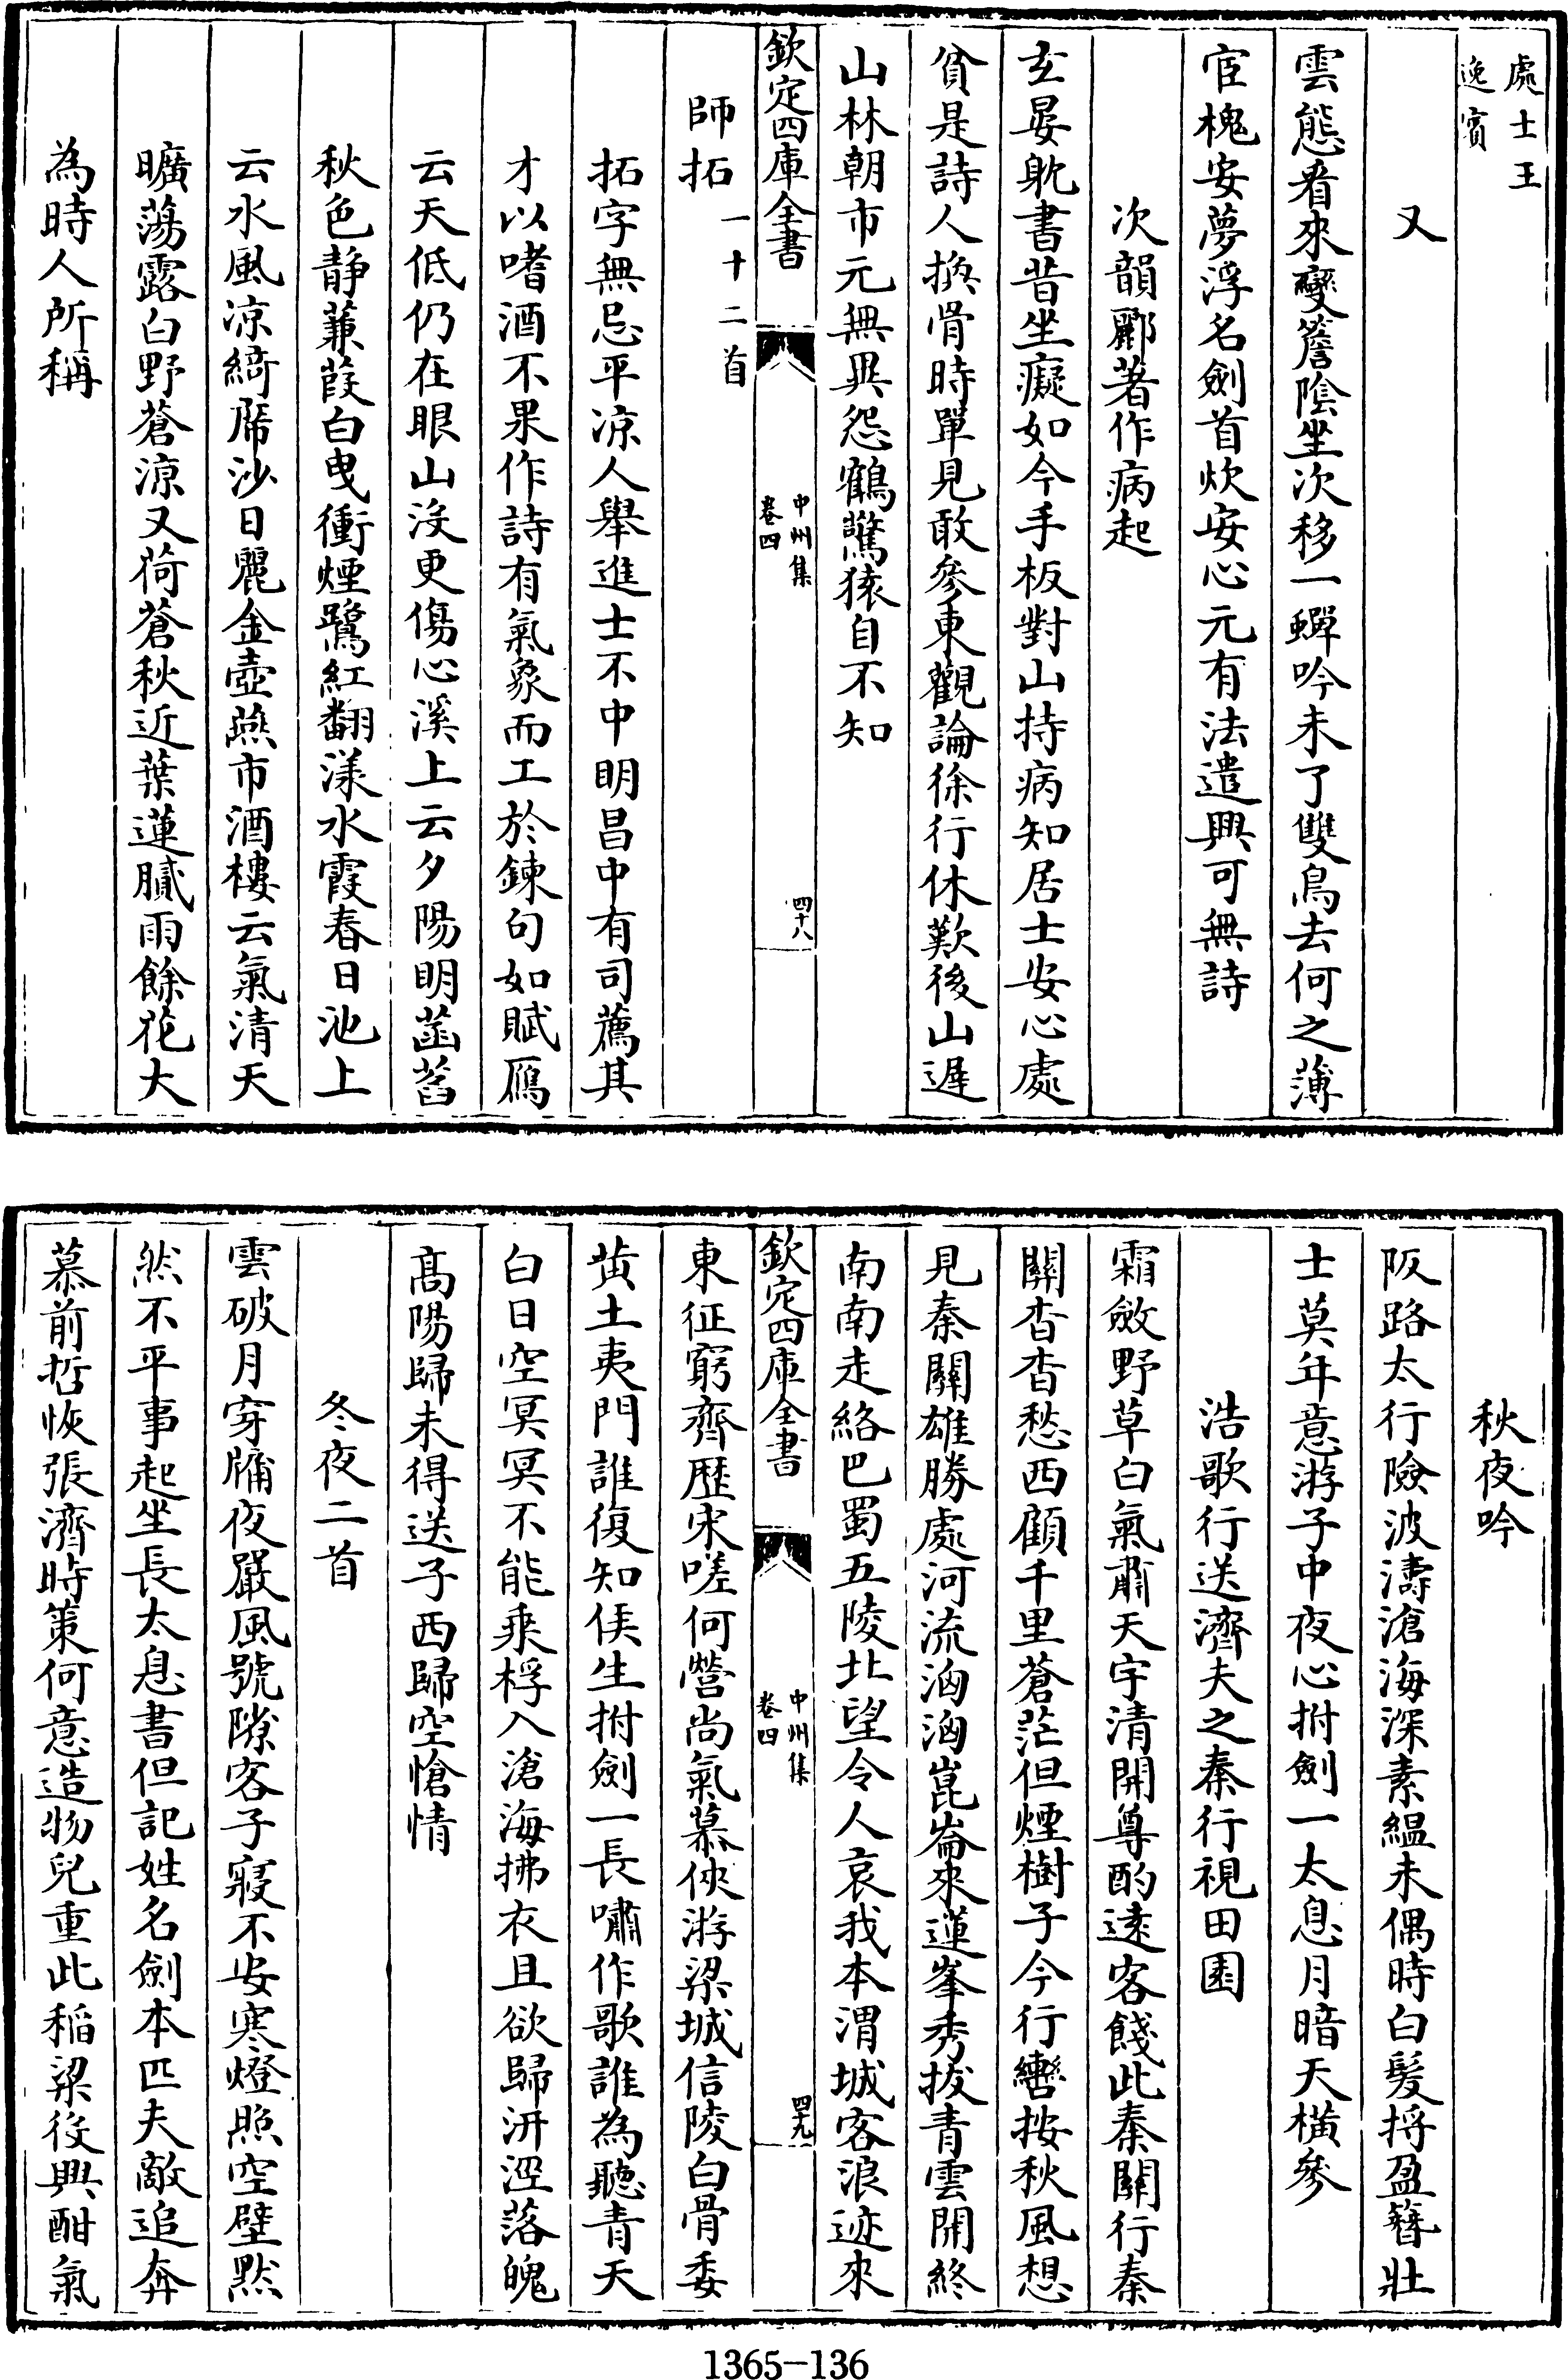 處士王
逸賓
又
雲態看來變簷陰坐次移一蟬吟未了雙鳥去何之薄
宦槐安夢浮名劍首炊安心元有法遣興可無詩
次韻酈著作病起
玄晏躭書昔坐癡如今手板對山持病知居士安心處
貧是詩人換骨時單見敢參東觀論徐行休歎後山遲
山林朝市元無異怨鶴驚猿自不知
欽定四庫全書
中州集
卷四
四十八
師拓一十二首
拓字無忌平凉人舉進士不中明昌中有司薦其
才以嗜酒不果作詩有氣象而工於鍊句如賦鴈
云天低仍在眼山沒更傷心溪上云夕陽明菡萏
秋色靜蒹葭白曳衝煙鷺紅翻漾水霞春日池上
云水風凉綺席沙日麗金壺燕市酒樓云氣清天
曠蕩露白野蒼凉又荷蒼秋近葉蓮膩雨餘花大
為時人所稱
秋夜吟
阪路太行險波濤滄海深素緼未偶時白髮捋盈簪壯
士莫年意游子中夜心拊劍一太息月暗天橫參
浩歌行送濟夫之秦行視田園
霜斂野草白氣肅天宇清開尊酌逺客餞此秦關行秦
關杳杳愁西顧千里蒼茫但煙樹子今行轡按秋風想
見秦關雄勝處河流洶洶崑崙來蓮峯秀拔青雲開終
南南走絡巴蜀五陵北望令人哀我本渭城客浪迹來
欽定四庫全書
中州集
卷四
四十九
東征窮齊歴宋嗟何營尚氣慕俠游梁城信陵白骨委
黄土夷門誰復知侯生拊劍一長嘯作歌誰為聽青天
白日空冥冥不能乘桴入滄海拂衣且欲歸汧涇落魄
髙陽歸未得送子西歸空愴情
冬夜二首
雲破月穿牖夜嚴風號隙客子寢不安寒燈照空壁黙
然不平事起坐長太息書但記姓名劍本匹夫敵追奔
慕前哲恢張濟時策何意造物兒重此稻粱役興酣氣
1365-136